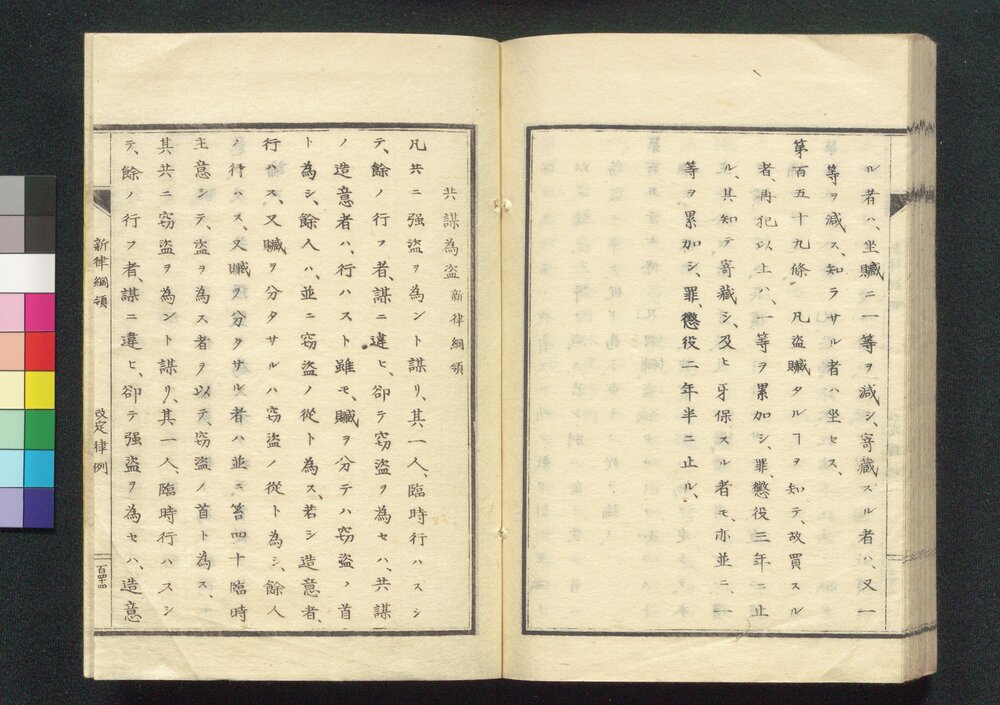 ル者ハ、坐贓ニ一等ヲ減シ、寄蔵スル者ハ、又一
等ヲ減ス、知ラサル者ハ坐セス、
第百五十九條 凡盗贓タルヿヲ知テ、故買スル
者、再犯以上ハ、一等ヲ累加シ、罪、懲役三年ニ止
ル、其知テ寄蔵シ、及ヒ牙保スル者モ、亦並ニ、一
等ヲ累加シ、罪、懲役二年半ニ止ル、
共謀為盗 新律綱領
凡共ニ强盗ヲ為ント謀リ、其一人、臨時行ハスシ
テ、餘ノ行フ者、謀ニ違ヒ、卻テ窃盗ヲ為セハ、共謀
ノ造意者ハ、行ハスト雖モ、贓ヲ分テハ窃盗ノ首
ト為シ、餘人ハ、並ニ窃盗ノ從ト為ス、若シ造意者、
行ハス、又贓ヲ分タサルハ窃盗ノ從ト為シ、餘人
ノ行ハス、又贓ヲ分タサル者ハ並ニ笞四十臨時
主意シテ、盗ヲ為ス者ヲ以テ、窃盗ノ首ト為ス、
其共ニ窃盗ヲ為ント謀リ、其一人、臨時行ハスシ
テ、餘ノ行フ者、謀ニ違ヒ、卻テ强盗ヲ為セハ、造意
新律綱領
改定律例
百四十四